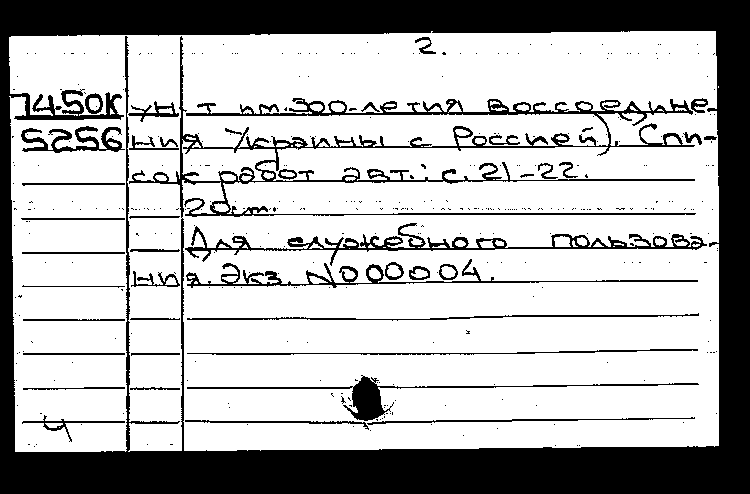 2.
7450К ун-т им. 300-летия воссоедине-
5256 ния Украины с Россией). Спи-
сок работ авт.: с. 21-22.
20см.
Для служебного пользова-
ния. Экз. N000004.
Ч